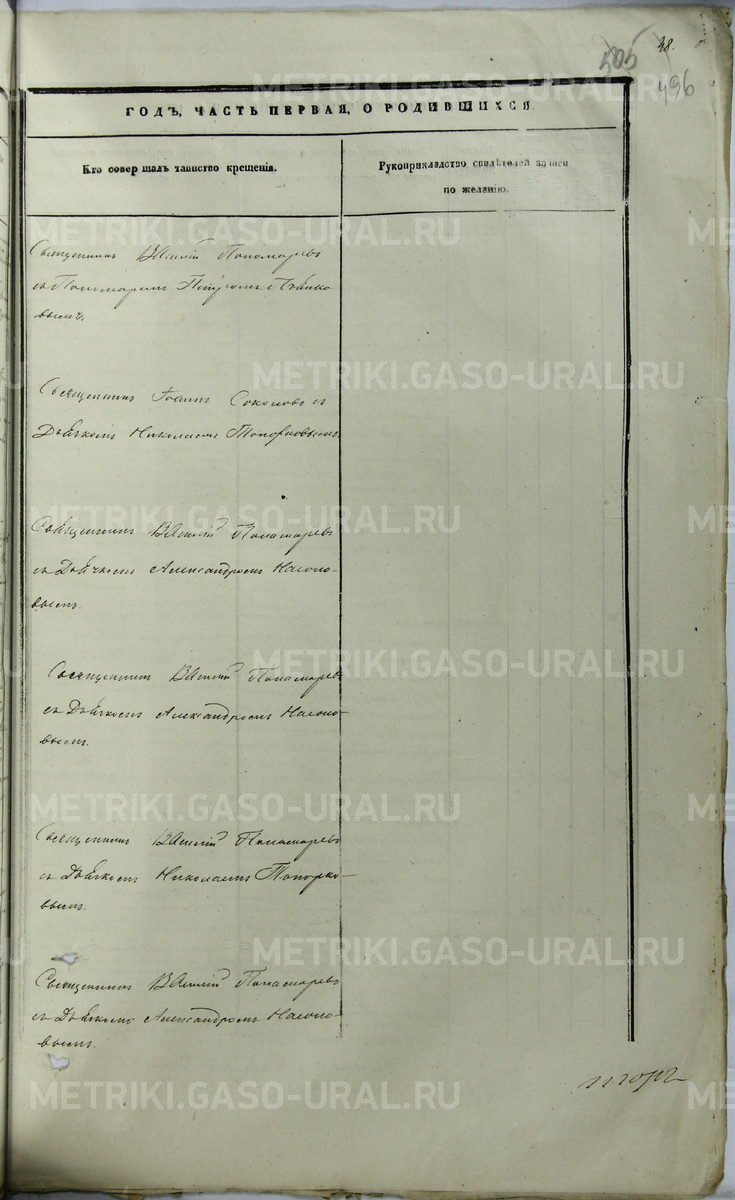 38.
505
496
ГОДЪ, ЧАСТЬ ПЕРВАЯ, О РОДИВШИХСЯ.
Кто совершалъ таинство крещенія.
Рукоприкладство свидѣтелей записи
по желанію.
Священникъ Василій Пономаревъ
съ Пономаремъ Петромъ
вымъ
Священникъ Іоаннъ Соколовъ съ
Дьячкомъ Николаемъ Топорковымъ
Священникъ Василій Понамаревъ
съ Дьячкомъ Александромъ Насоно-
вымъ.
Священникъ Василій Понамаревъ
съ Дьячкомъ Александромъ Насоно-
вымъ.
Священникъ Василій Понамаревъ
съ Дьячкомъ Николаемъ Топорко-
вымъ.
Священникъ Василій Понамаревъ
съ Дьячкомъ Александромъ Насоно-
вымъ.
METRIKI.GASO-URAL.RU